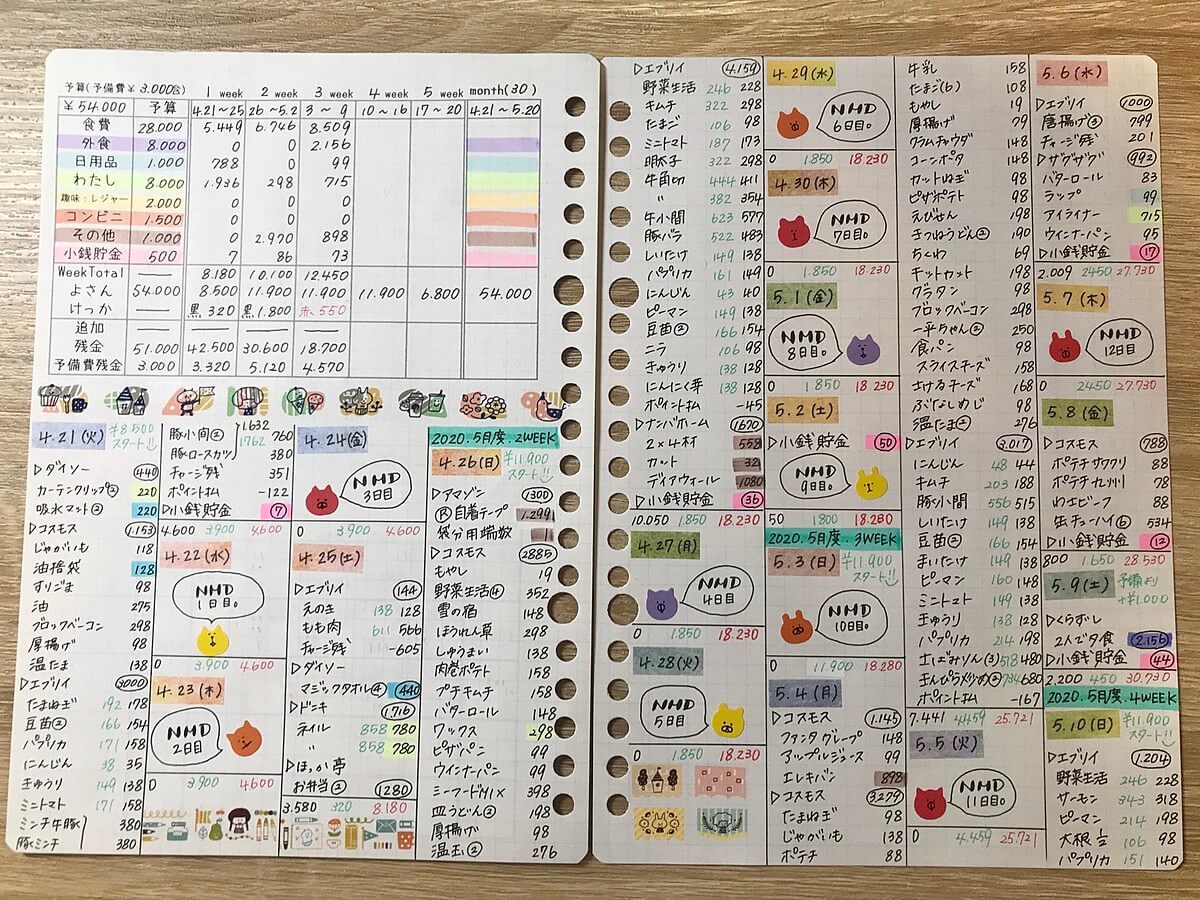 予算(予備費¥3.000含) 1 week 2 week 3 week 4 week 5 week month(30)
¥54.000 予算 4.21~25 26~5.2 3~9 10~16 17~20 4.21~5.20
食費 28.000 5.449 6.746 8.509
外食 8.000 0 0 2.156
日用品 1.000 788 0 99
わたし 8.000 1.936 298 715
趣味:レジャー 2.000 0 0 0
コンビニ 1.500 0 0 0
その他 1.000 0 2.970 898
小銭貯金 500 7 86 73
WeekTotal — 8.180 10.100 12.450
よさん 54.000 8.500 11.900 11.900 11.900 6.800 54.000
けっか — 黒320 黒1.800 赤550
追加 — — — —
残金 51.000 42.500 30.600 18.700
予備費残金 3.000 3.320 5.120 4.570
4.21(火) ¥8.500
スタート
▷ダイソー 440
カーテンクリップ② 220
吸水マット② 220
▷コスモス 1.153
じゃがいも 118
油捨袋 128
すりごま 98
油 275
ブロックベーコン 298
厚揚げ 98
温たま 138
▷エブリイ 3000
たまねぎ 192 178
豆苗② 166 154
パプリカ 171 158
にんじん 38 35
きゅうり 149 138
ミニトマト 171 158
ミンチ牛豚 380
豚ミンチ 380
1.632
豚小間② 1762 760
豚ロースカツ 380
チャージ残 351
ポイント払 -122
▷小銭貯金 7
4.600 3.900 4.600
4.22(水)
NMD
1日目。
0 3.900 4.600
4.23(木)
NMD
2日目
0 3.900 4.600
4.24(金)
NMD
3日目
0 3.900 4.600
4.25(土)
▷エブリイ 144
えのき 138 128
もも肉 611 566
チャージ残 -605
▷ダイソー
マジックタオル④ 440
▷ドンキ 1.716
ネイル 858 780
〃 858 780
▷ほっか亭
お弁当② 1280
3.580 320 8.180
2020.5月度.2WEEK
4.26(日) ¥11.900
スタート
▷アマゾン 1300
Ⓡ自着テープ 1.299
袋分用端数 1
▷コスモス 2885
もやし 19
野菜生活④ 352
雪の宿 148
ほうれん草 298
しゅうまい 138
肉巻ポテト 158
プチキムチ 158
バターロール 148
ワックス 298
ピザパン 99
ウインナーパン 99
シーフードMIX 398
皿うどん② 198
厚揚げ 98
温玉② 276
▷エブリイ 4.159
野菜生活 246 228
キムチ 322 298
たまご 106 98
ミニトマト 187 173
明太子 322 298
牛角切 444 411
〃 382 354
牛小間 623 577
豚バラ 522 483
しいたけ 149 138
パプリカ 161 149
にんじん 43 40
ピーマン 149 138
豆苗② 166 154
ニラ 106 98
きゅうり 138 128
にんにく芽 138 128
ポイント払 -45
▷ナンバホーム 1670
2×4材 558
カット 32
ディアウォール 1080
▷小銭貯金 36
10.050 1.850 18.230
4.27(月)
NMD
4日目
0 1.850 18.230
4.28(火)
NMD
5日目
0 1.850 18.230
4.29(水)
NMD
6日目。
0 1.850 18.230
4.30(木)
NMD
7日目。
0 1.850 18.230
5.1(金)
NMD
8日目。
0 1.850 18.230
5.2(土)
▷小銭貯金 50
NMD
9日目。
50 1800 18.280
2020.5月度.3WEEK
5.3(日) ¥11.900
スタート
NMD
10日目。
0 11.900 18.280
5.4(月)
▷コスモス 1.145
ファンタグレープ 148
アップルジュース 99
エレキバン 898
▷コスモス 3.279
たまねぎ 98
じゃがいも 138
ポテチ 88
牛乳 158
たまご(6) 108
もやし 19
厚揚げ 79
クラムチャウダ 148
コーンポタ 148
カットねぎ 98
ピザポテト 98
えびせん 198
きつねうどん② 190
ちくわ 69
キットカット 198
グラタン 98
ブロックベーコン 298
一平ちゃん② 250
食パン 98
スライスチーズ 158
さけるチーズ 168
ぶなしめじ 98
温たま② 276
▷エブリイ 3.017
にんじん 48 44
キムチ 203 188
豚小間 556 515
しいたけ 149 138
豆苗② 166 154
まいたけ 149 138
ピーマン 160 148
ミニトマト 149 138
きゅうり 138 128
パプリカ 214 198
士ばみりん(3) 518 480
きんぴら炒め② 734 680
ポイント払 -167
7.441 4.459 25.721
5.5(火)
NMD
11日目。
0 4.459 25.721
5.6(水)
▷エブリイ 1000
唐揚げ③ 799
チャージ残 201
▷ザグザグ 992
バターロール 83
ラップ 99
アイライナー 715
ウィンナーパン 95
▷小銭貯金 17
2.009 2450 27.730
5.7(木)
NMD
12日目
0 2450 27.730
5.8(金)
▷コスモス 788
ポテチサワクリ 88
ポテチ九州 78
わさビーフ 88
缶チューハイ⑥ 534
▷小銭貯金 12
800 1.650 28.530
5.9(土) 予備より
+¥1.000
▷くらずし
2人で夕食 2.156
▷小銭貯金 44
2.200 450 30.730
2020.5月度.4WEEK
5.10(日) ¥11.900
スタート
▷エブリイ 1.204
野菜生活 246 228
サーモン 343 318
ピーマン 214 198
大根½ 106 98
パプリカ 151 140